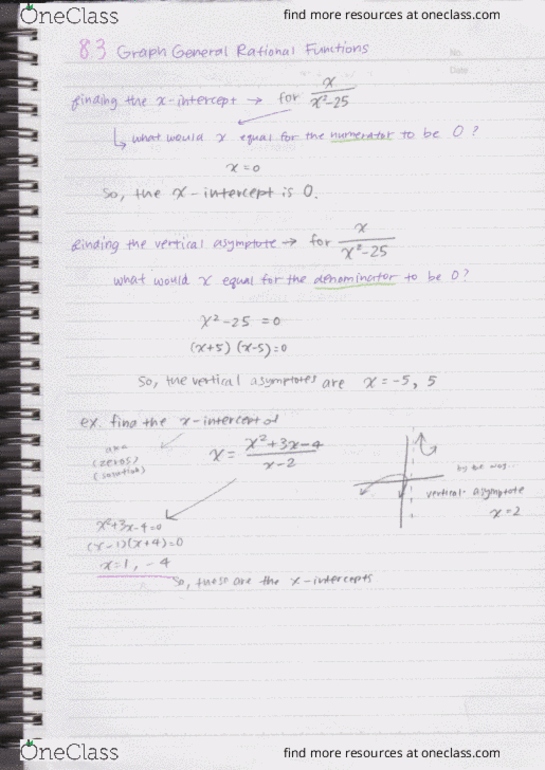 OneClass
find more resources at oneclass.com
8.3 Graph General Rational Functions
No.
Date
finding the x-intercept → for x / x²-25
what would x equal for the numerator to be 0?
x = 0
So, the x-intercept is 0.
finding the vertical asymptote → for x / x²-25
what would x equal for the denominator to be 0?
x² - 25 = 0
(x+5) (x-5) = 0
So, the vertical asymptotes are x = -5, 5
ex. find the x-intercept of
aka
(zeros)
(solution)
x = x²+3x-4 / x-2
by the way..
vertical asymptote
x = 2
x²+3x-4=0
(x-1)(x+4)=0
x=1, -4
So, these are the x-intercepts
OneClass
find more resources at oneclass.com